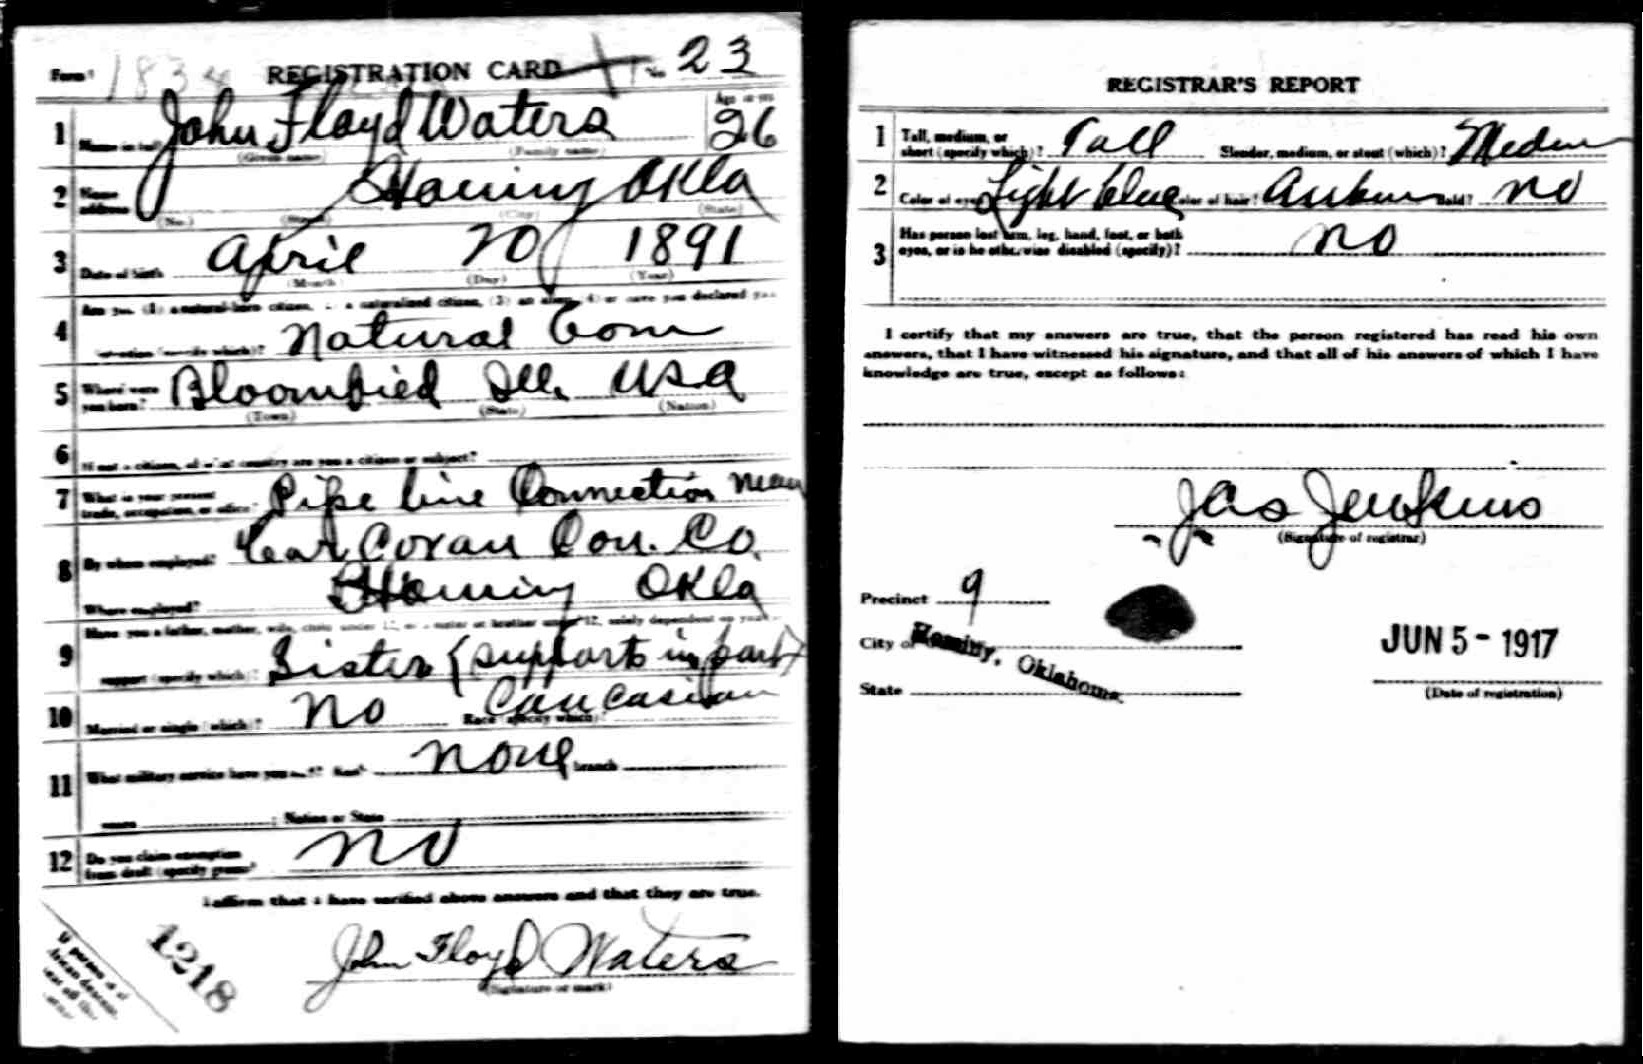 Form 1 1834 REGISTRATION CARD No. 23
1 Name in full John Floyd Waters Age in yrs 26
(Given name) (Family name)
2 Home address Hominy Okla
(No.) (Street) (City) (State)
3 Date of birth April 20 1891
(Month) (Day) (Year)
Are you (1) a natural-born citizen, (2) a naturalized citizen, (3) an alien, (4) or have you declared your
4 intention (specify which)? Natural Born
5 Where were you born? Bloomfield Ill. USA
(Town) (State) (Nation)
6 If not a citizen, of what country are you a citizen or subject?
7 What is your present trade, occupation, or office? Pipe line Connection
8 By whom employed? Con. Co.
Where employed? Hominy Okla
Have you a father, mother, wife, child under 12, or a sister or brother under 12, solely dependent on you for
9 support (specify which)? Sister (supports in part)
10 Married or single (which)? No Race (specify which)? Caucasian
11 What military service have you had? Rank None branch
years ; Nation or State
12 Do you claim exemption from draft (specify grounds)? No
I affirm that I have verified above answers and that they are true.
John Floyd Waters
(Signature or mark)
If person is of African descent,
1218
REGISTRAR'S REPORT
1 Tall, medium, or short (specify which)? Tall Slender, medium, or stout (which)? Medium
2 Color of eyes Light blue Color of hair? Auburn Bald? No
3 Has person lost arm, leg, hand, foot, or both eyes, or is he otherwise disabled (specify)? No
I certify that my answers are true, that the person registered has read his own
answers, that I have witnessed his signature, and that all of his answers of which I have
knowledge are true, except as follows:
Jas Jenkins
(Signature of registrar)
Precinct 9
City of Hominy, Oklahoma.
State
JUN 5 - 1917
(Date of registration)